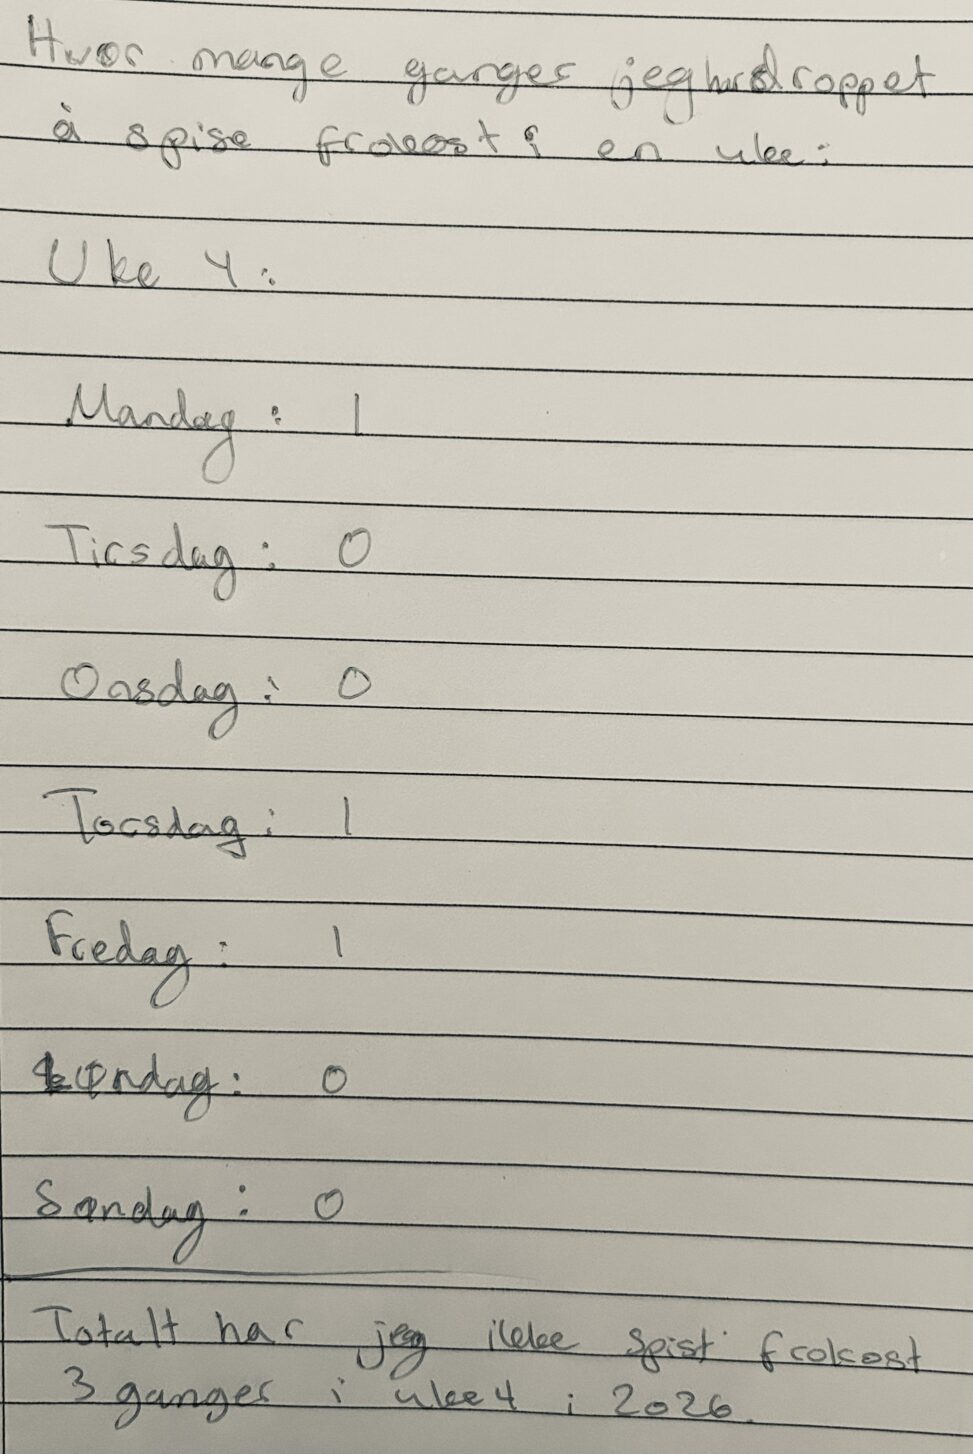 Hvor mange ganger jeg har droppet
å spise frokost i en uke:
Uke 4:
Mandag: 1
Tirsdag: 0
Onsdag: 0
Torsdag: 1
Fredag: 1
Lørdag: 0
Søndag: 0
Totalt har jeg ikke spist frokost
3 ganger i uke 4 i 2026.